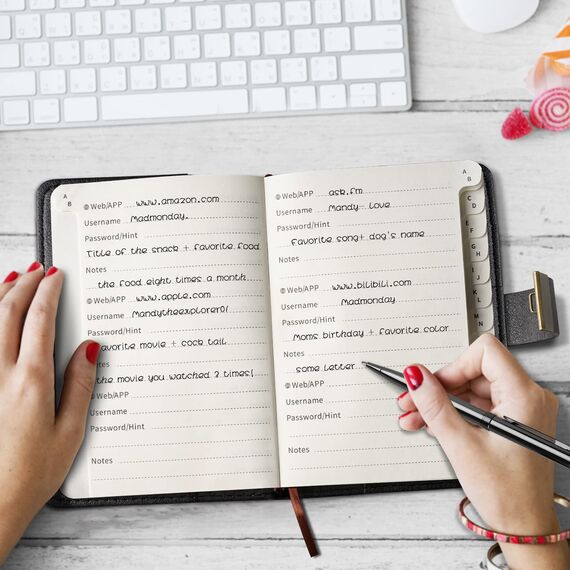 A
B
Web/APP www.amazon.com
Username Madmonday.
Password/Hint
Title of the snack + favorite food
Notes
the food eight times a month
Web/APP www.apple.com
Username Mandytheexplorer01
Password/Hint
favorite movie + cock tail
Notes
the movie you watched 7 times!
Web/APP
Username
Password/Hint
Notes
Web/APP ask.fm
Username Mandy love
Password/Hint
favorite song+ dog's name
Notes
Web/APP www.bilibili.com
Username Madmonday
Password/Hint
Moms birthday + favorite color
Notes
some letter
Web/APP
Username
Password/Hint
Notes
A
B
C
D
E
F
G
H
I
J
K
L
M
N